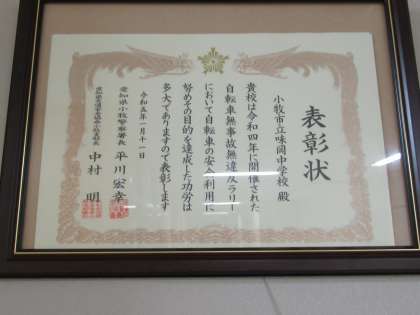 表彰状
小牧市立味岡中学校 殿
貴校は令和四年に開催された
自転車無事故無違反ラリー
において自転車の安全利用に
努めその目的を達成した功労は
多大でありますので表彰します
令和五年一月十一日
愛知県小牧警察署長 平川宏幸
中村 明